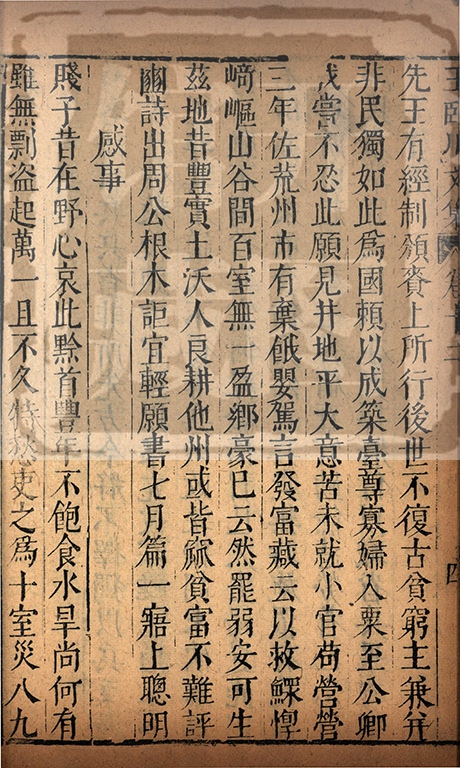 王臨川文集 卷第十二 四
先王有經制頒賚上所行後世不復古貧窮主兼并
非民獨如此為國賴以成築臺尊寡婦入粟至公卿
我嘗不忍此願見井地平大意苦未就小官苟營營
三年佐荒州市有棄餓嬰駕言發富藏云以救鰥惸
崎嶇山谷間百室無一盈鄉豪已云然罷弱安可生
茲地昔豐實土沃人良耕他州或皆窳貧富不難評
豳詩出周公根木詎宜輕願書七月篇一寤上聰明
感事
賤子昔在野心哀此黔首豐年不飽食水旱尚何有
雖無剽盜起萬一且不久特愁吏之為十室災八九